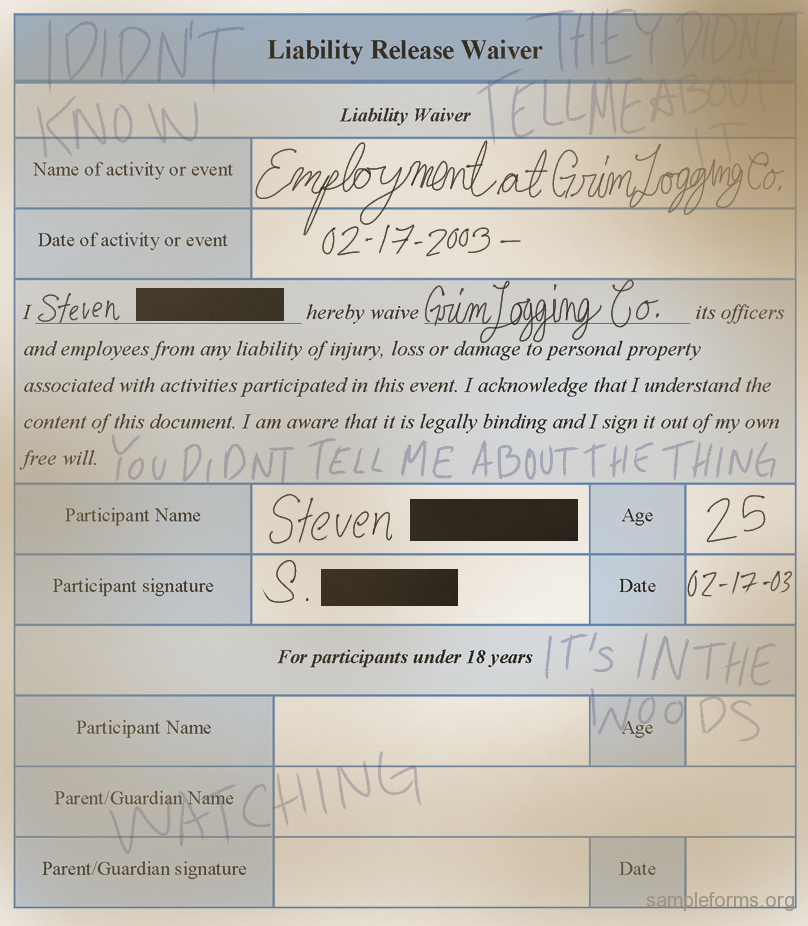 I DIDN'T
KNOW
THEY DIDNT
TELL ME ABOUT
IT
Liability Release Waiver
Liability Waiver
Name of activity or event Employment at Grim Logging Co.
Date of activity or event 02-17-2003 –
I Steven hereby waive Grim Logging Co. its officers
and employees from any liability of injury, loss or damage to personal property
associated with activities participated in this event. I acknowledge that I understand the
content of this document. I am aware that it is legally binding and I sign it out of my own
free will. YOU DIDNT TELL ME ABOUT THE THING
Participant Name Steven Age 25
Participant signature S. Date 02-17-03
For participants under 18 years IT'S IN THE
WOODS
Participant Name Age
WATCHING
Parent/Guardian Name
Parent/Guardian signature Date
sampleforms.org